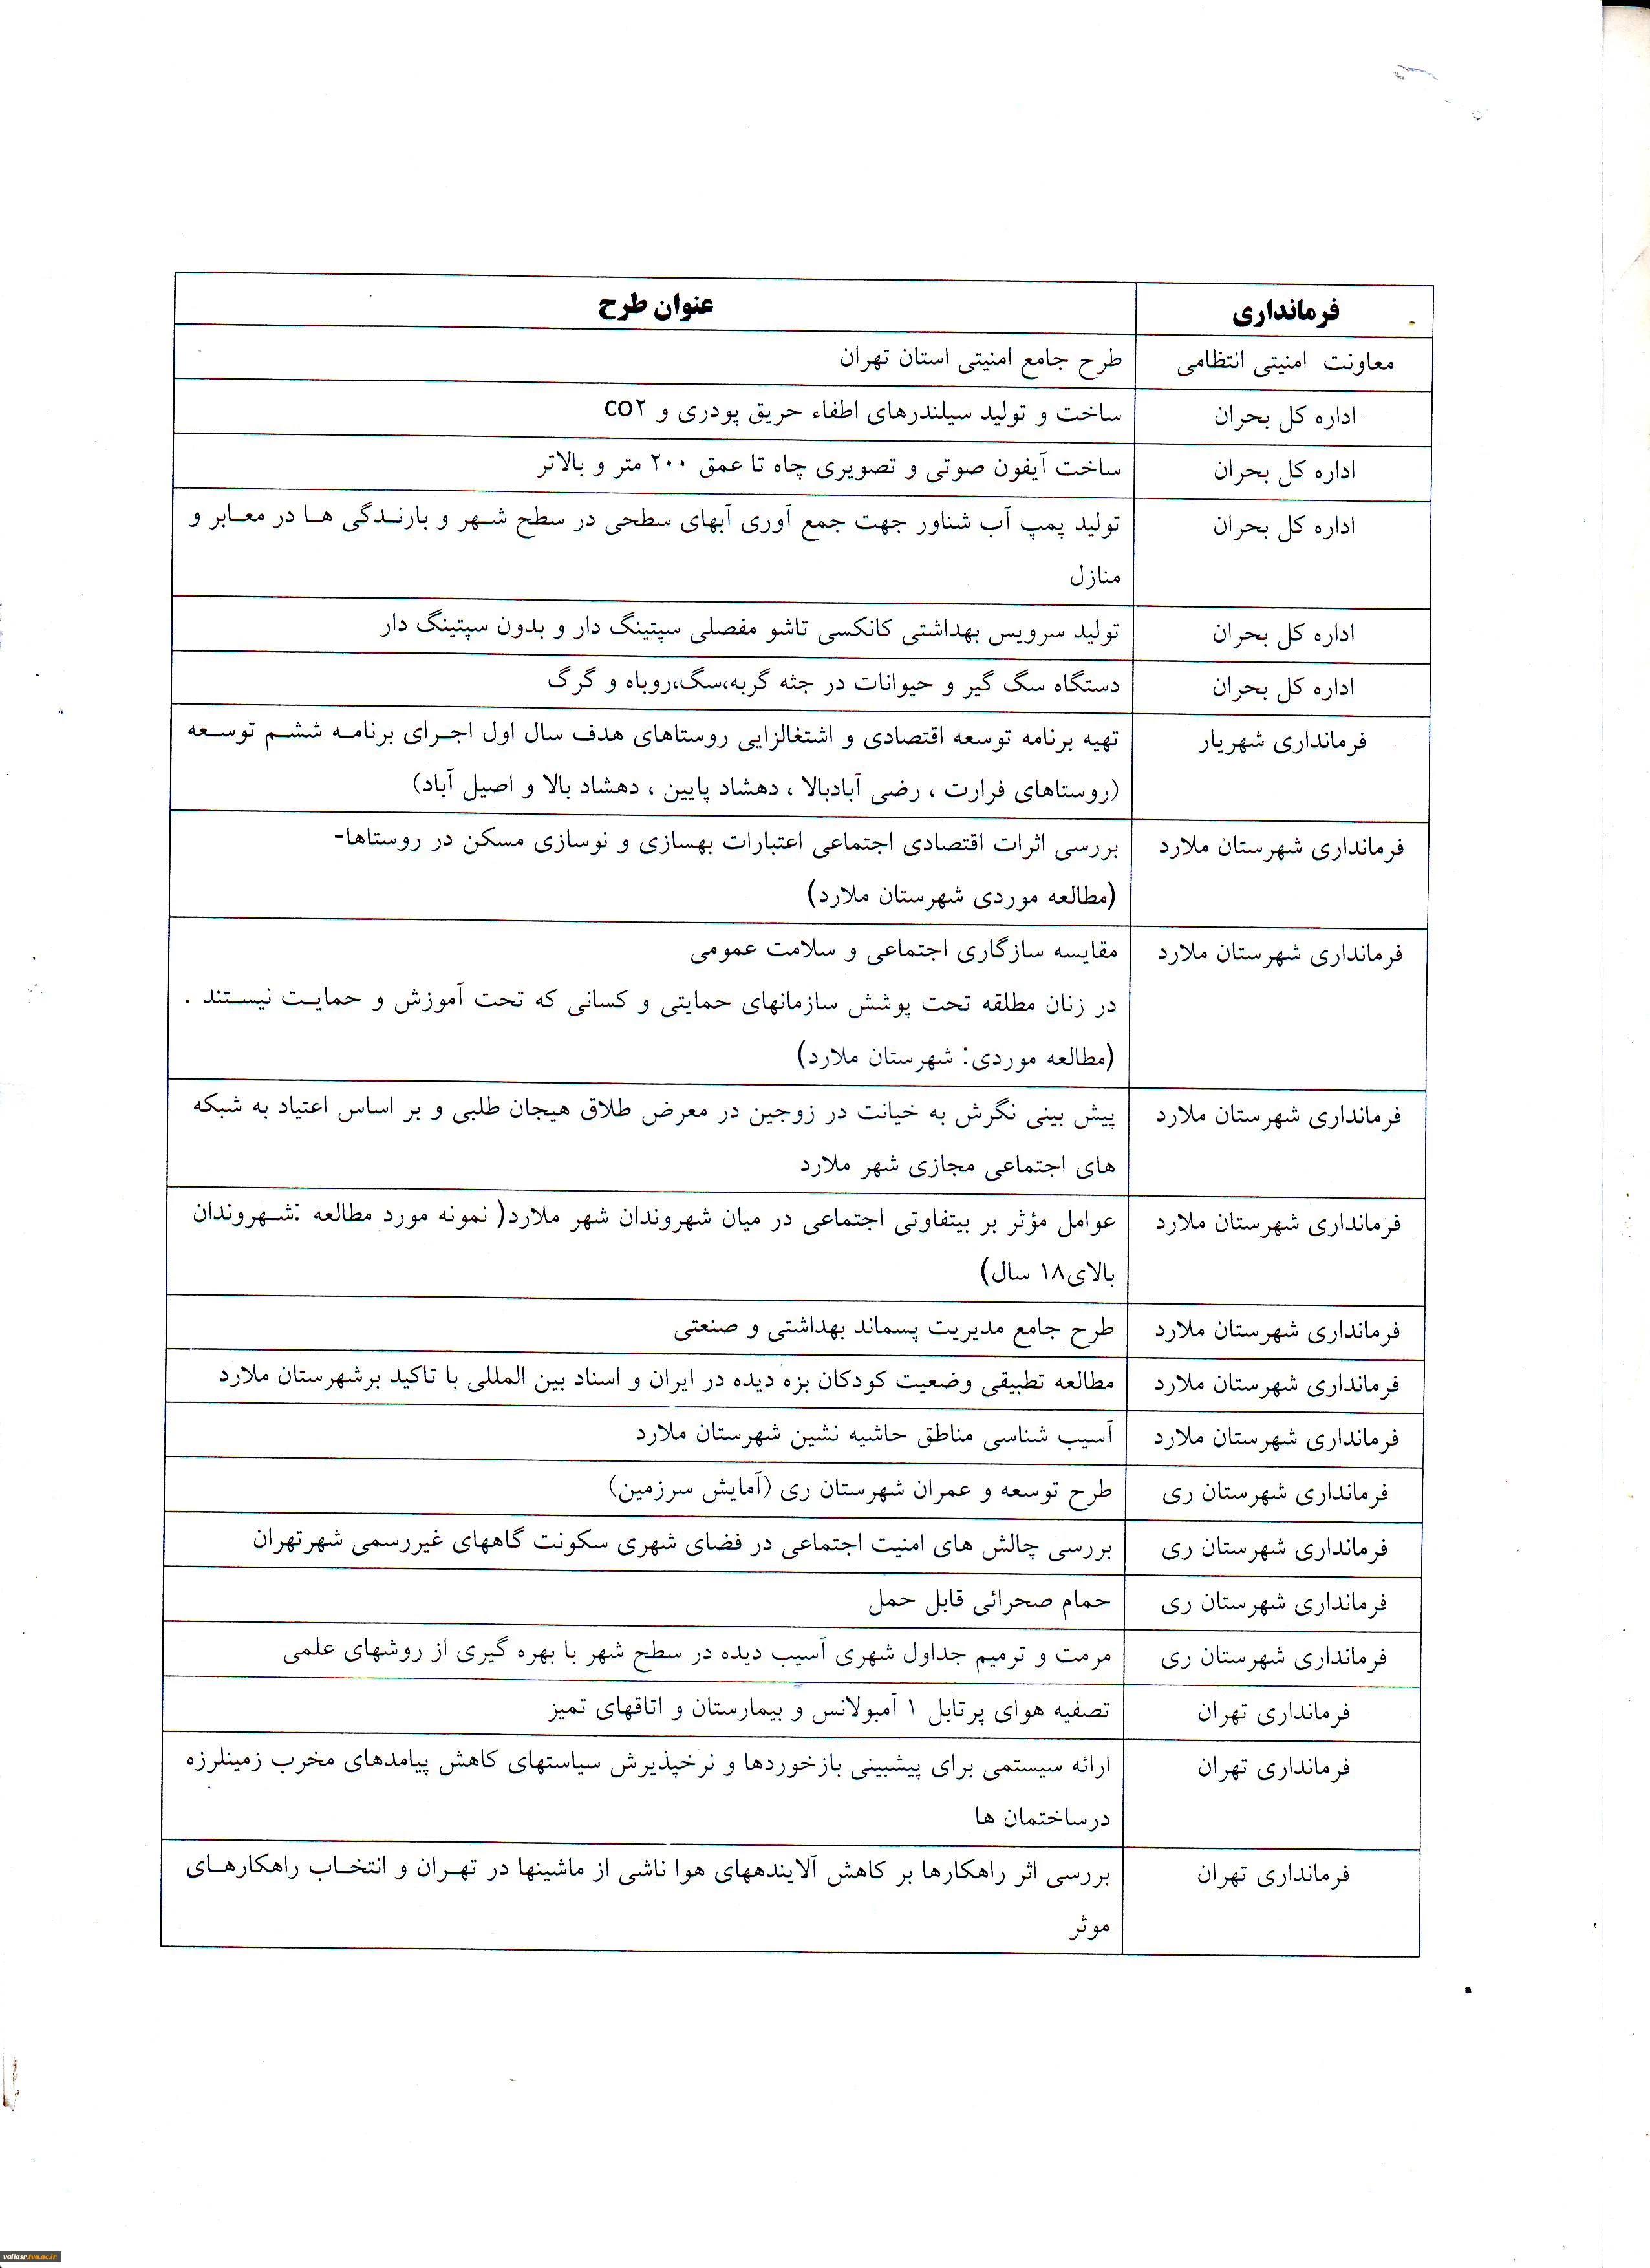 فرمانداری	عنوان طرح
معاونت امنیتی انتظامی	طرح جامع امنیتی استان تهران
اداره کل بحران	ساخت و تولید سیلندرهای اطفاء حریق پودری و CO۲
اداره کل بحران	ساخت آیفون صوتی و تصویری چاه تا عمق ۲۰۰ متر و بالاتر
اداره کل بحران	تولید پمپ آب شناور جهت جمع آوری آبهای سطحی در سطح شهر و بارندگی ها در معابر و
منازل
اداره کل بحران	تولید سرویس بهداشتی کانکسی تاشو مفصلی سپتینگ دار و بدون سپتینگ دار
اداره کل بحران	دستگاه سگ گیر و حیوانات در جثه گربه،سگ،روباه و گرگ
فرمانداری شهریار	تهیه برنامه توسعه اقتصادی و اشتغالزایی روستاهای هدف سال اول اجرای برنامه ششم توسعه
(روستاهای فرارت ، رضی آبادبالا ، دهشاد پایین ، دهشاد بالا و اصیل آباد)
فرمانداری شهرستان ملارد	بررسی اثرات اقتصادی اجتماعی اعتبارات بهسازی و نوسازی مسکن در روستاها-
(مطالعه موردی شهرستان ملارد)
فرمانداری شهرستان ملارد	مقایسه سازگاری اجتماعی و سلامت عمومی
در زنان مطلقه تحت پوشش سازمانهای حمایتی و کسانی که تحت آموزش و حمایت نیستند .
(مطالعه موردی: شهرستان ملارد)
فرمانداری شهرستان ملارد	پیش بینی نگرش به خیانت در زوجین در معرض طلاق هیجان طلبی و بر اساس اعتیاد به شبکه
های اجتماعی مجازی شهر ملارد
فرمانداری شهرستان ملارد	عوامل مؤثر بر بیتفاوتی اجتماعی در میان شهروندان شهر ملارد( نمونه مورد مطالعه :شهروندان
بالای۱۸ سال)
فرمانداری شهرستان ملارد	طرح جامع مدیریت پسماند بهداشتی و صنعتی
فرمانداری شهرستان ملارد	مطالعه تطبیقی وضعیت کودکان بزه دیده در ایران و اسناد بین المللی با تاکید برشهرستان ملارد
فرمانداری شهرستان ملارد	آسیب شناسی مناطق حاشیه نشین شهرستان ملارد
فرمانداری شهرستان ری	طرح توسعه و عمران شهرستان ری (آمایش سرزمین)
فرمانداری شهرستان ری	بررسی چالش های امنیت اجتماعی در فضای شهری سکونت گاههای غیررسمی شهرتهران
فرمانداری شهرستان ری	حمام صحرائی قابل حمل
فرمانداری شهرستان ری	مرمت و ترمیم جداول شهری آسیب دیده در سطح شهر با بهره گیری از روشهای علمی
فرمانداری تهران	تصفیه هوای پرتابل ۱ آمبولانس و بیمارستان و اتاقهای تمیز
فرمانداری تهران	ارائه سیستمی برای پیشبینی بازخوردها و نرخپذیرش سیاستهای کاهش پیامدهای مخرب زمینلرزه
درساختمان ها
فرمانداری تهران	بررسی اثر راهکارها بر کاهش آلایندههای هوا ناشی از ماشینها در تهران و انتخاب راهکارهای
موثر
valiasr.tvu.ac.ir